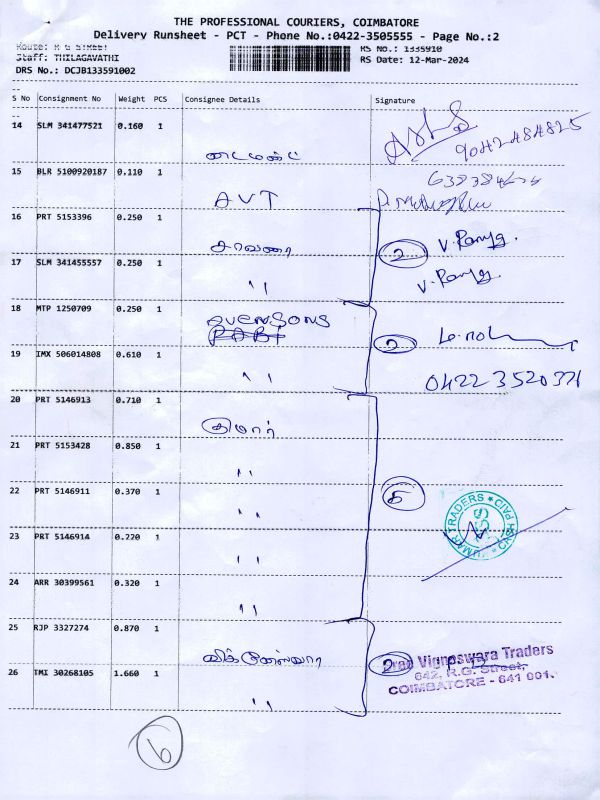 THE PROFESSIONAL COURIERS, COIMBATORE
Delivery Runsheet - PCT - Phone No.:0422-3505555 - Page No.:2
Route: R G STREET
Staff: THILAGAVATHI
RS No.: 1335910
RS Date: 12-Mar-2024
DRS No.: DCJB133591002
S No Consignment No Weight PCS Consignee Details Signature
14 SLM 341477521 0.160 1
9042484825
15 BLR 5100920187 0.110 1
AVT
16 PRT 5153396 0.250 1
2 V. Ramya.
17 SLM 341455557 0.250 1
" V. Ramya.
18 MTP 1250709 0.250 1
2
19 IMX 506014808 0.610 1
" 0422 3520321
20 PRT 5146913 0.710 1
குமார்
21 PRT 5153428 0.850 1
"
22 PRT 5146911 0.370 1
" 5
KUMAR TRADERS * CASH PAID *
23 PRT 5146914 0.220 1
"
24 ARR 30399561 0.320 1
"
25 RJP 3327274 0.870 1
2 Vigneswara Traders
642, R.G. Street,
COIMBATORE - 641 001.
26 TMI 30268105 1.660 1
"
6